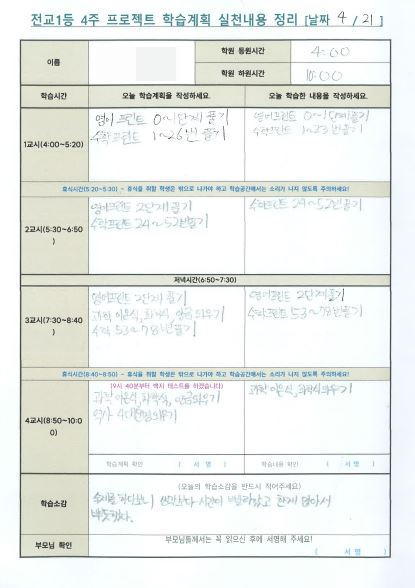 전교1등 4주 프로젝트 학습계획 실천내용 정리 [날짜 4 / 21 ]
이름
학원 등원시간
4:00
학원 하원시간
10:00
학습시간
오늘 학습계획을 작성하세요.
오늘 학습한 내용을 작성하세요.
1교시(4:00~5:20)
영어 프린트 0~1단계 풀기
수학 프린트 1~26번 풀기
영어프린트 0~1단계 풀기
수학프린트 1~23번 풀기
휴식시간(5:20~5:30) - 휴식을 취할 학생은 밖으로 나가야 하고 학습공간에서는 소리가 나지 않도록 주의하세요!
2교시(5:30~6:50)
영어프린트 2단계 풀기
수학프린트 24~52번풀기
수학프린트 24~52번풀기
저녁시간(6:50~7:30)
3교시(7:30~8:40)
영어프린트 2단계 풀기
과학 이온식, 화학식, 앙금 외우기
수학 53~78번풀기
영어프린트 2단계풀기
수학프린트 53~78번풀기
휴식시간(8:40~8:50) - 휴식을 취할 학생은 밖으로 나가야 하고 학습공간에서는 소리가 나지 않도록 주의하세요!
4교시(8:50~10:00)
(9시 40분부터 백지 테스트를 하겠습니다)
과학 이온식, 화학식, 앙금외우기
역사 외우기
과학 이온식, 화학식외우기
학습계획 확인 ( 서 명 )
학습내용 확인 ( 서 명 )
학습소감
(오늘의 학습소감을 반드시 적어주세요)
시간이 빨리갔고 한게 많아서
뿌듯했다.
부모님 확인
부모님들께서는 꼭 읽으신 후에 서명해 주세요!
( 서 명 )